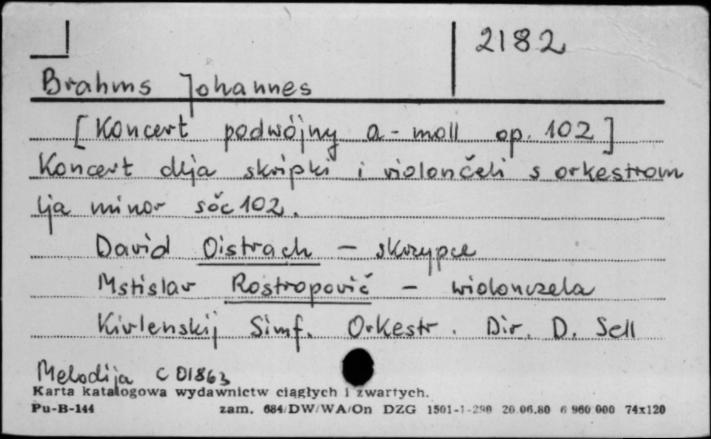 2182
Brahms Johannes
[Koncert podwójny a-moll op. 102]
Koncert dlja skripki i violončeli s orkestrom
lja minor soč 102.
David Oistrach – skrzypce
Mstislav Rostropovič – wiolonczela
Kivlenskij Simf. Orkestr. Dir. D. Sell
Melodija C 01863
Karta katalogowa wydawnictw ciągłych i zwartych.
Pu-B-144 zam. 684/DW/WA/On DZG 1501-1-290 20.06.80 6 960 000 74x120